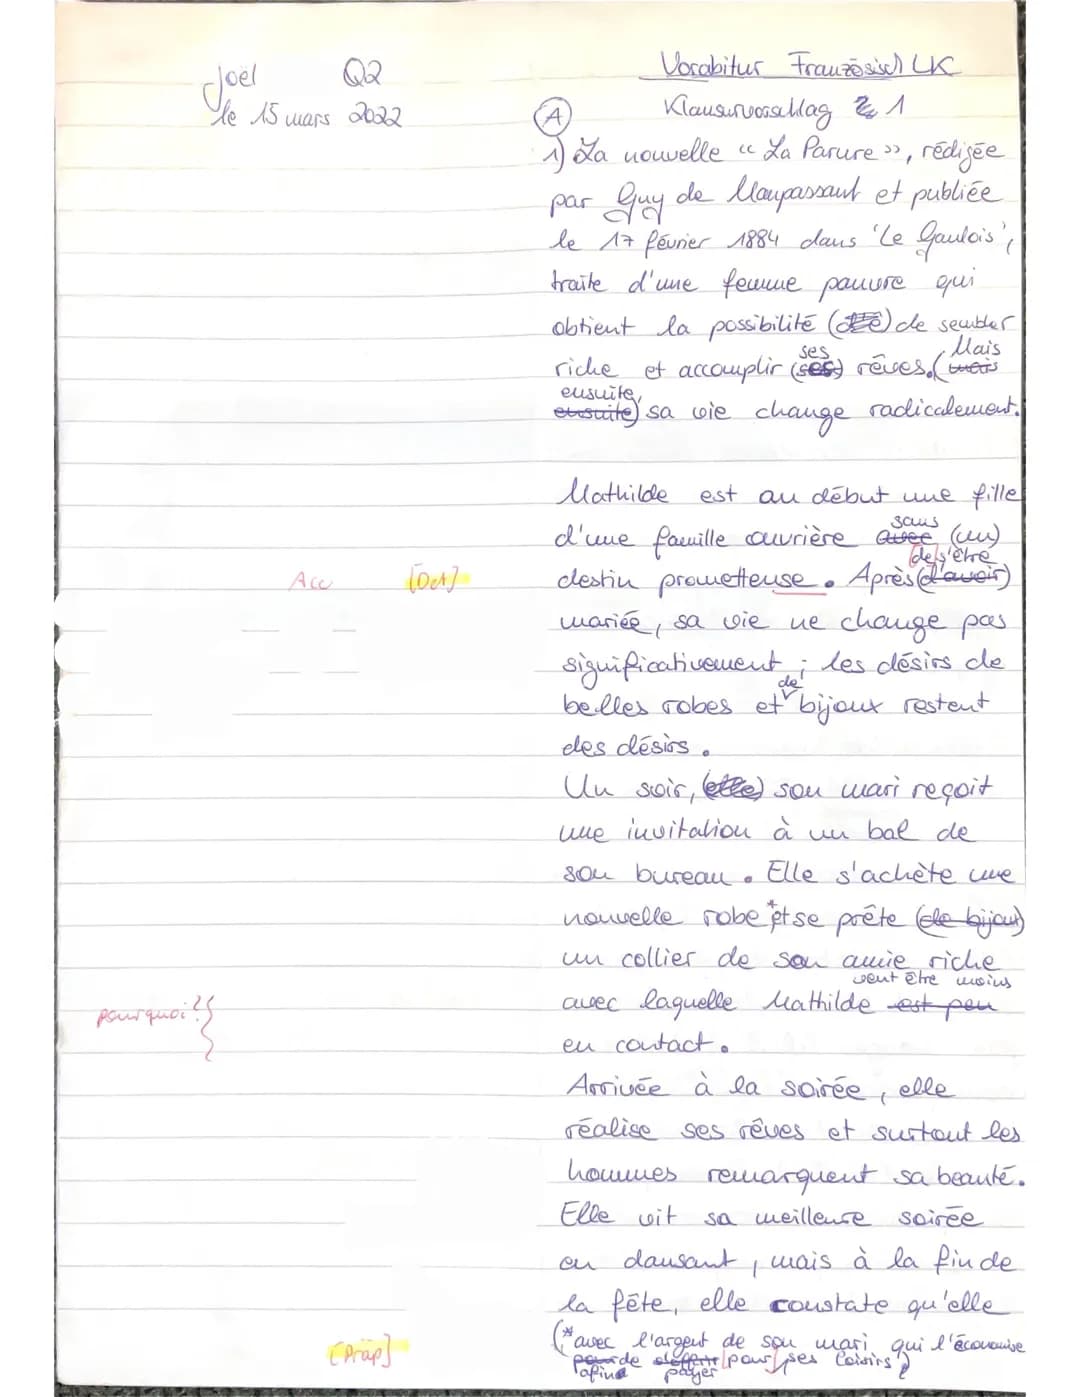 Joël Q2
le 15 mars 2022
Vorabitur Französisch LK
Klausurvorschlag 1
A
1) La nouvelle « La Parure », rédigée
par Guy de Maupassant et publiée
le 17 février 1884 dans 'Le Gaulois',
traite d'une femme pauvre qui
obtient la possibilité de sembler
riche et accomplir (ses) ses rêves. (mais Mais
ensuite) ensuite, sa vie change radicalement.
Mathilde est au début une fille
d'une famille ouvrière avec sans (un)
Acc [Det] destin prometteuse. Après (d'avoir) de s'être
mariée, sa vie ne change pas
significativement ; les désirs de
belles robes et de bijoux restent
des désirs.
Un soir, (elle) son mari reçoit
une invitation à un bal de
son bureau. Elle s'achète une
nouvelle robe * et se prête (de bijoux)
un collier de son amie riche
pourquoi? avec laquelle Mathilde est peu veut être moins
en contact.
Arrivée à la soirée, elle
réalise ses rêves et surtout les
hommes remarquent sa beauté.
Elle vit sa meilleure soirée
en dansant, mais à la fin de
la fête, elle constate qu'elle
(* avec l'argent de son mari qui l'économise
[Präp] pour afin de payer pour ses loisirs)